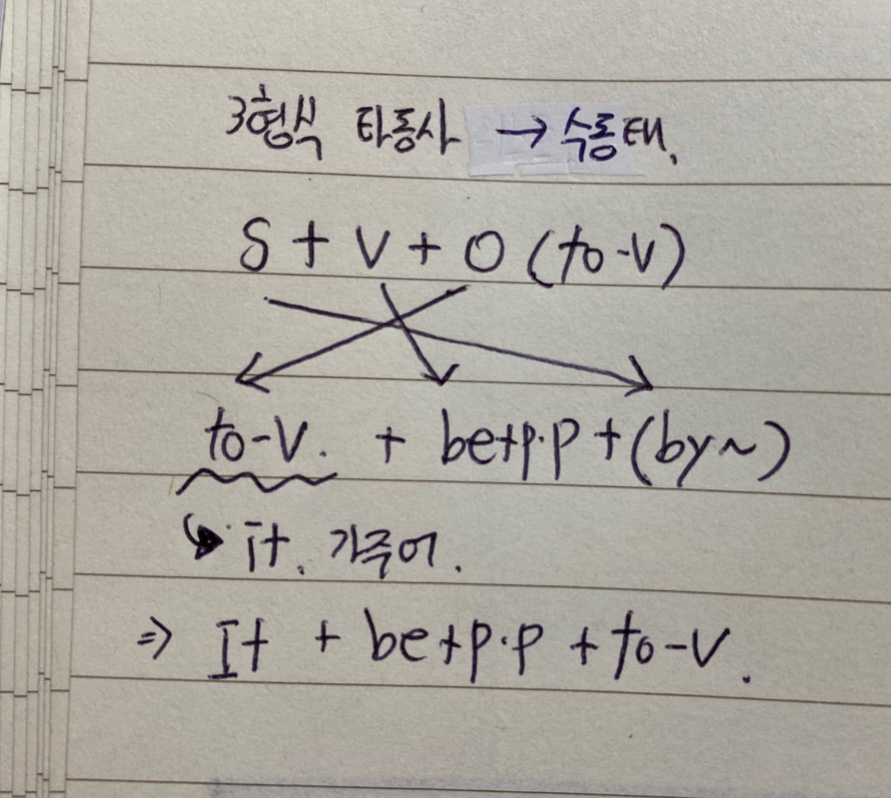 3형식 타동사 → 수동태.
S + V + O (to-V)
to-V. + be+p.p + (by~)
↳ it. 가주어.
⇒ It + be+p.p + to-V.